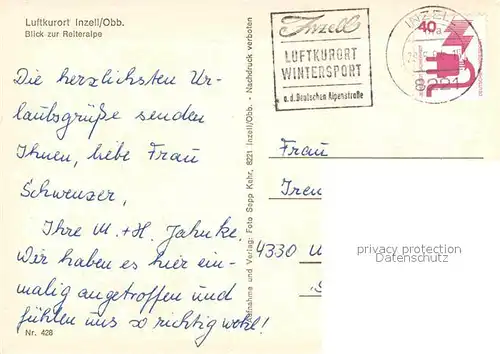 Luftkurort Inzell/Obb.
Blick zur Reiteralpe
Die herzlichsten Ur-
laubsgrüße senden
Ihnen, liebe Frau
Schwenzer,
Ihre M. + H. Jahnke.
Wir haben es hier ein-
malig angetroffen und
fühlen uns so richtig wohl!
Nr. 428
Aufnahme und Verlag: Foto Sepp Kehr, 8221 Inzell/Obb. - Nachdruck verboten
Inzell
LUFTKURORT
WINTERSPORT
a. d. Deutschen Alpenstraße
INZELL
8221
40
Frau
Iren
4330
privacy protection
Datenschutz